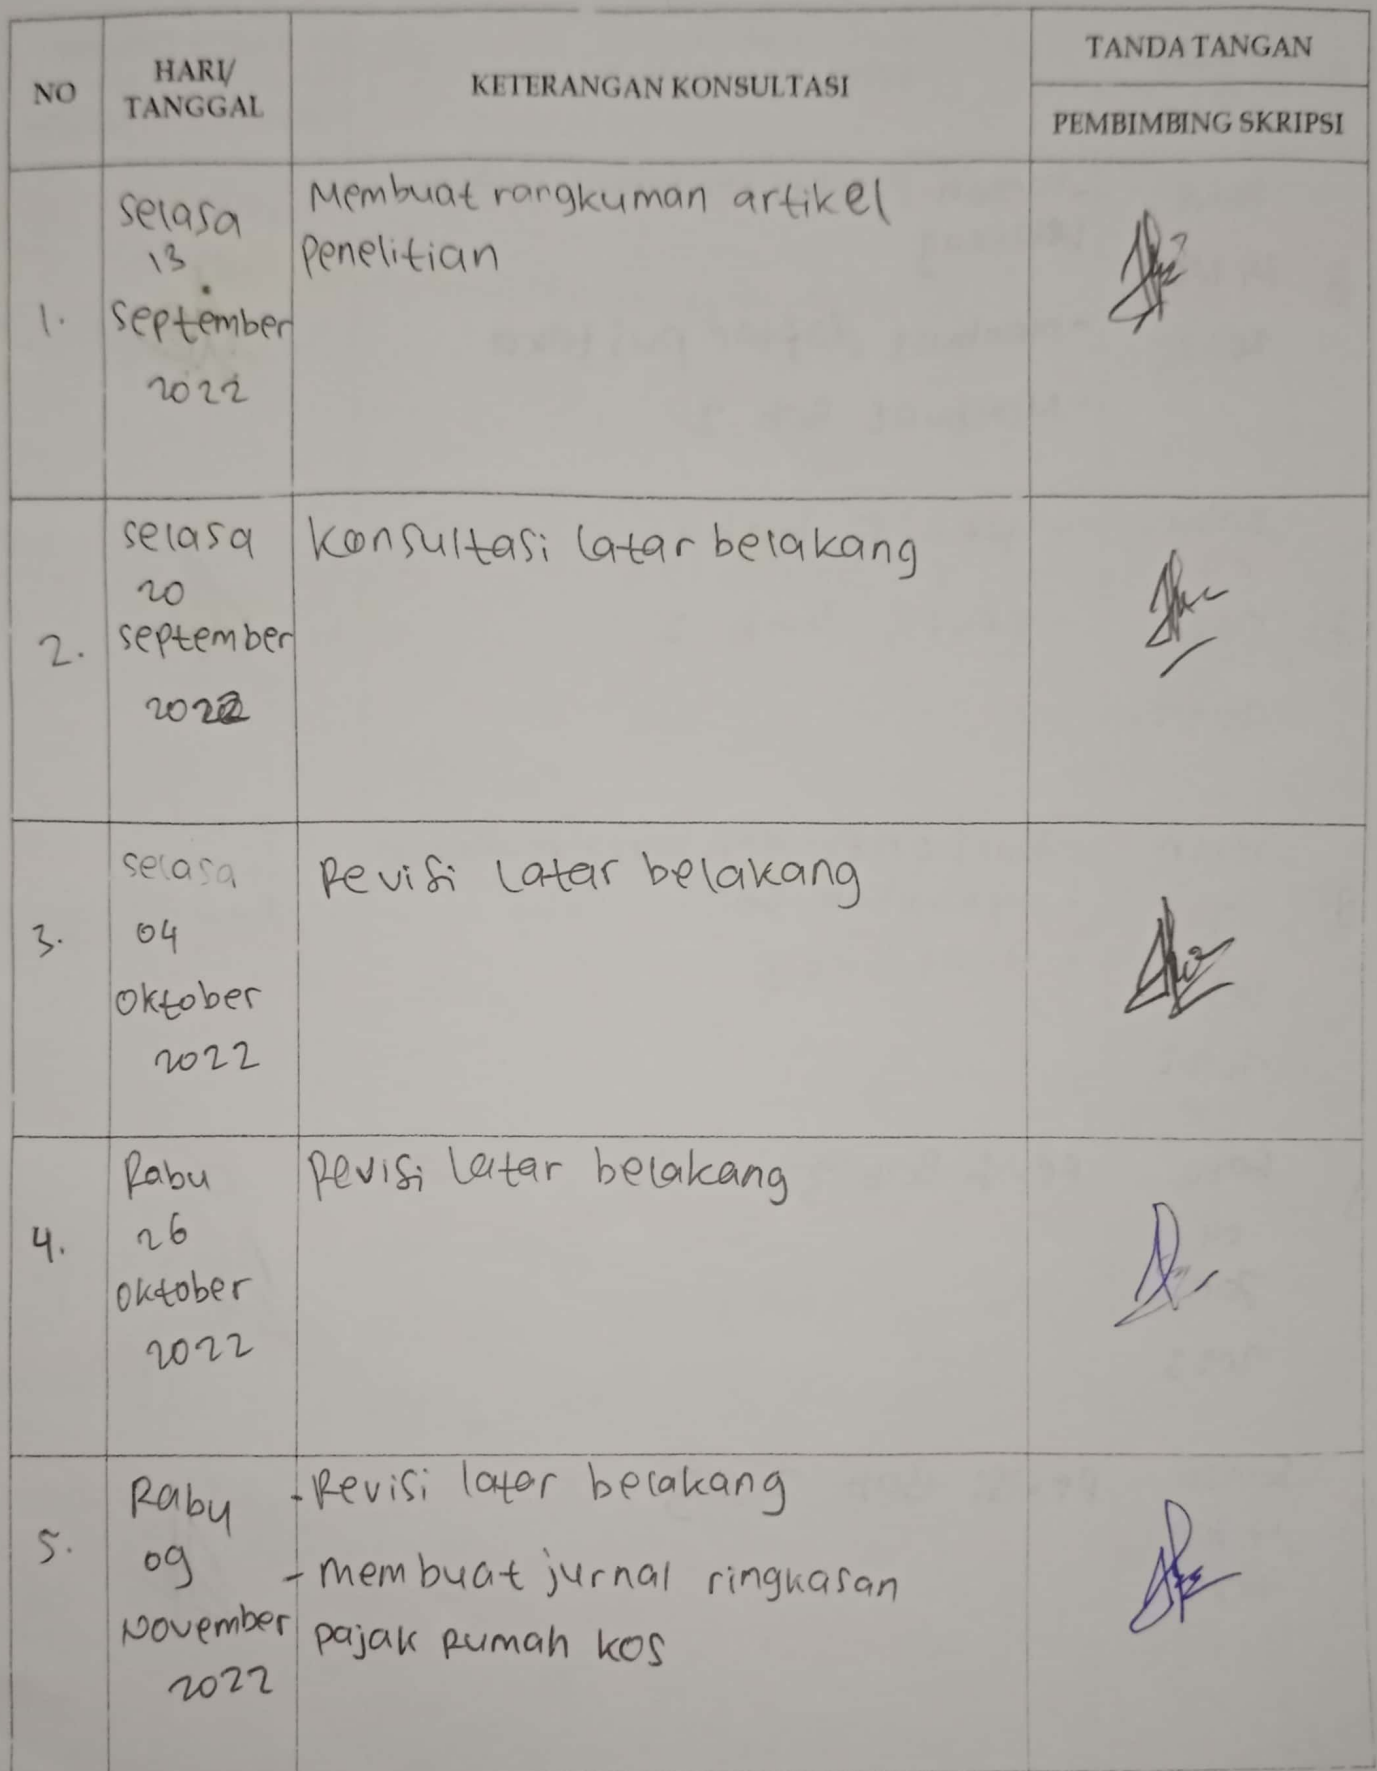 NO
HARI/
TANGGAL
KETERANGAN KONSULTASI
TANDA TANGAN
PEMBIMBING SKRIPSI
1.
Selasa
13
September
2022
Membuat rangkuman artikel
Penelitian
2.
Selasa
20
September
2022
Konsultasi latar belakang
3.
Selasa
04
Oktober
2022
Revisi latar belakang
4.
Rabu
26
Oktober
2022
Revisi latar belakang
5.
Rabu
09
November
2022
- Revisi latar belakang
- membuat jurnal ringkasan
pajak Rumah kos